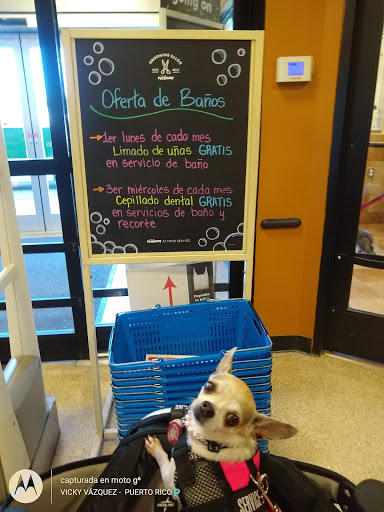 going on
GROOMING SALON
PETSMART
Oferta de Baños
→ 1er lunes de cada mes
Limado de uñas GRATIS
en servicio de baño
→ 3er miércoles de cada mes
Cepillado dental GRATIS
en servicios de baño y
recorte
PETSMART AT YOUR SERVICE
SERVICE
capturada en moto g⁶
VICKY VÁZQUEZ - PUERTO RICO